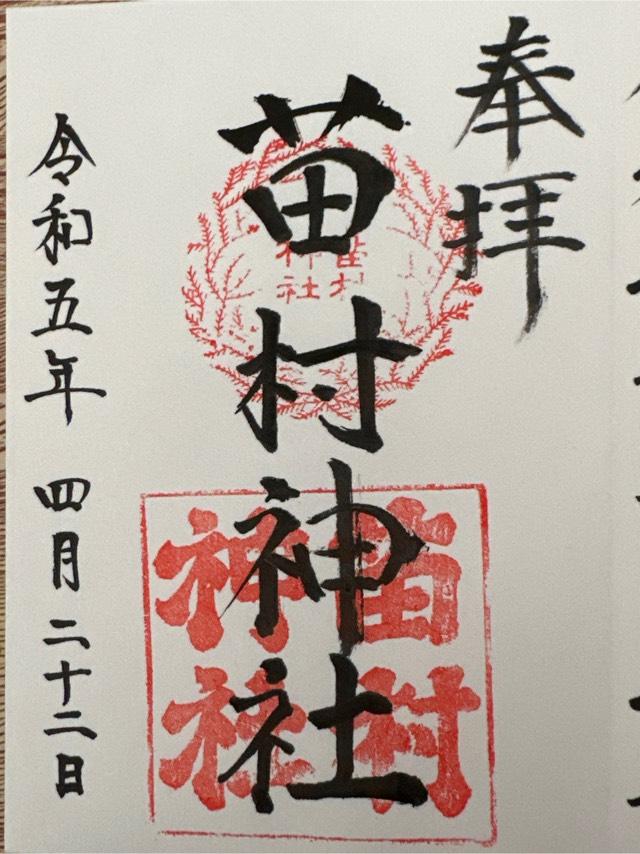 奉拝
苗村神社
苗村
神社
苗村
神社
令和五年 四月二十二日